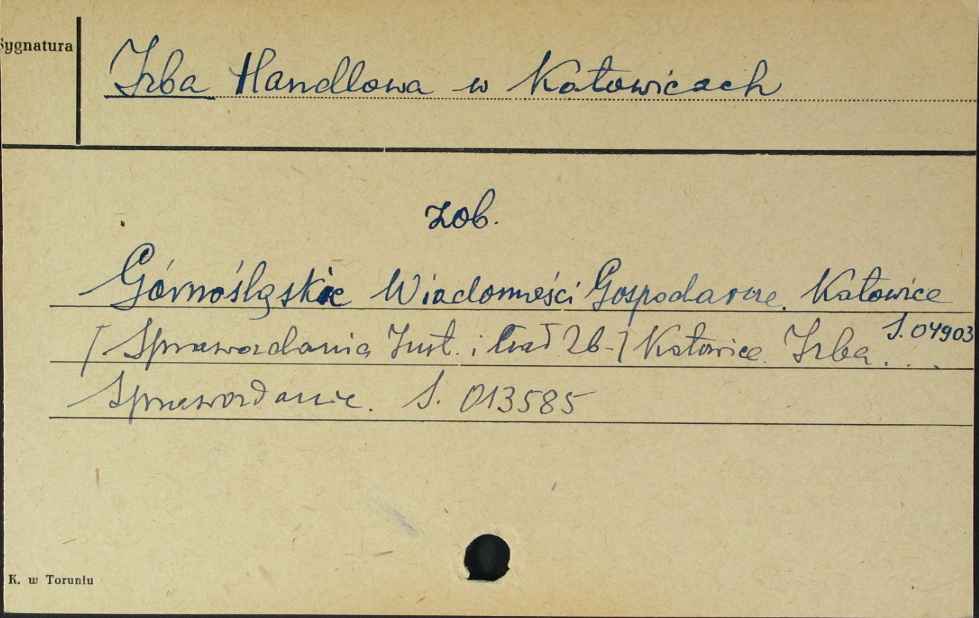 Sygnatura
Izba Handlowa w Katowicach
zob.
Górnośląskie Wiadomości Gospodarcze. Katowice
S. 04903
[Sprawozdania Inst. i Izb] Katowice. Izba...
Sprawozdanie. S. 013585
K. w Toruniu